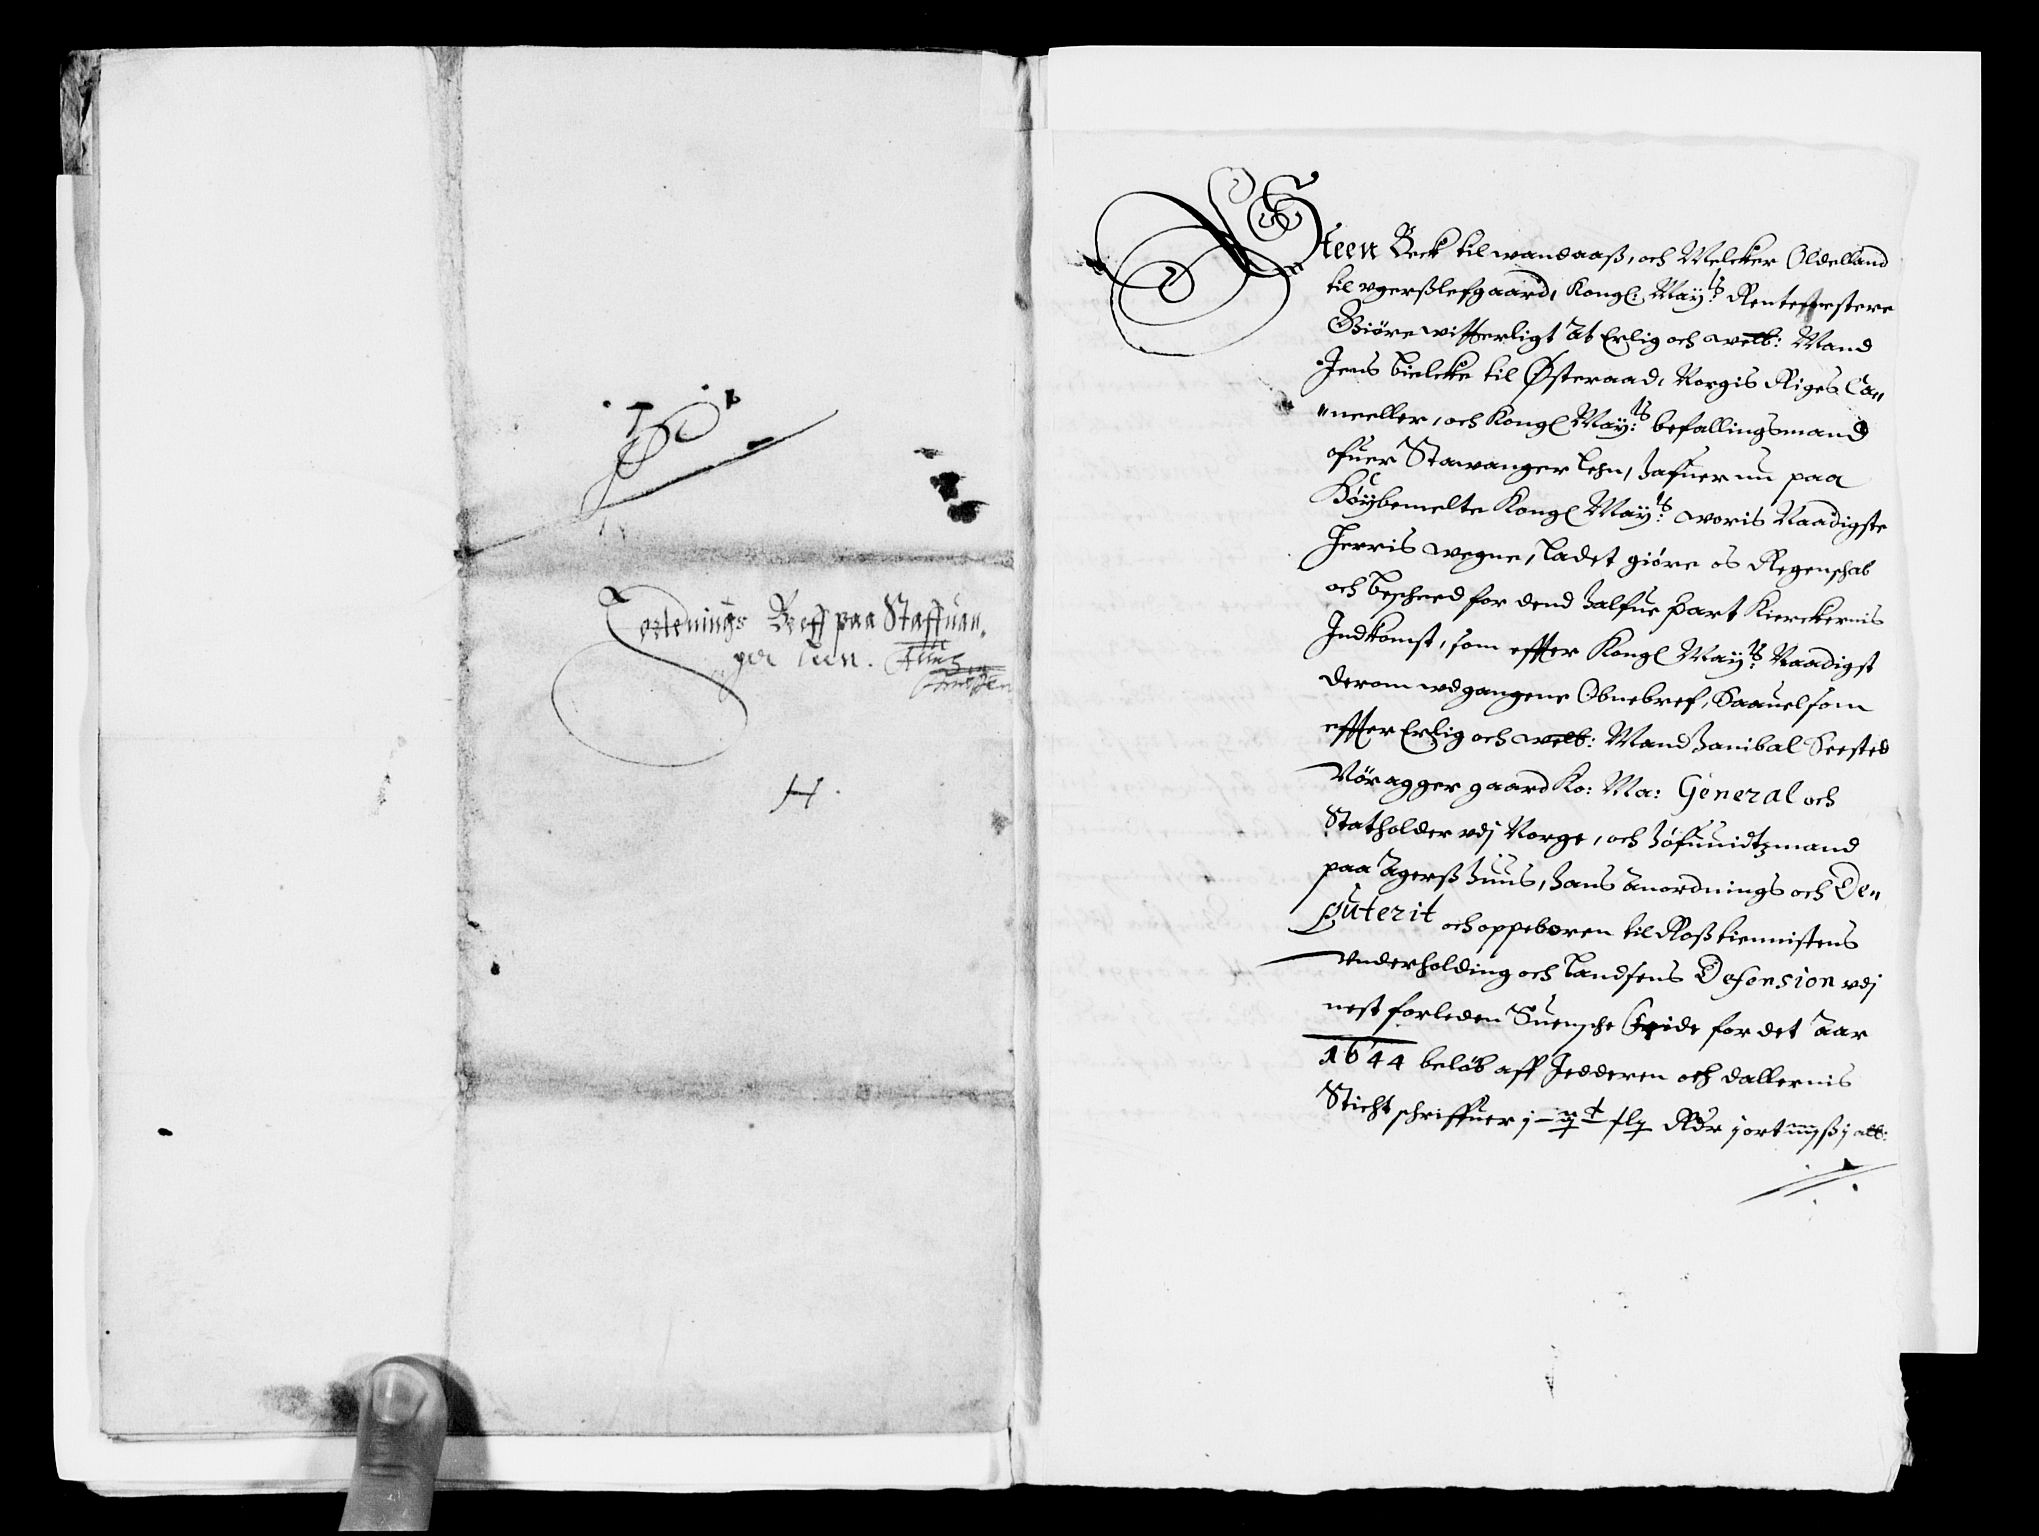 Forlenings Breff paa Staffuan,
ger Leen.
H.
Steen Beck til wandaaß, och Melcker Oldelland
til vgerßlefgaard, Kongl: May:ts Rentemestere
Giöre witterligt At Erlig och welb: Mand
Jens bielcke til Østeraad, Norgis Riges Ca„
„nceller, och Kongl May:ts befallingsmand
ofuer Stawanger Lehn, Hafuer nu paa
Höybemelte Kongl May:ts woris Naadigste
Herris wegne, ladet giöre os Regenschab
och bescheed for dend halfue part Kierckernis
Indkomst, som effter Kongl May:ts Naadigst
derom wdgangene Obnebref, saauelsom
effter Erlig och welb: Mand Hanibal Seested
Nöragger gaard Ko: Ma: General och
Statholder vdj Norge, och Höfuuidtzmand
paa Agerß Huus, Hans Anordnings och De„
puterit och oppeboren til Roß tiennistens
vnderholding och Landsens Defension vdj
nest forleden Suensche feide for det Aar
1644 beløb aff Jedderen och dallernis
Sticht schriffuer Rdr j ort ß j alb: